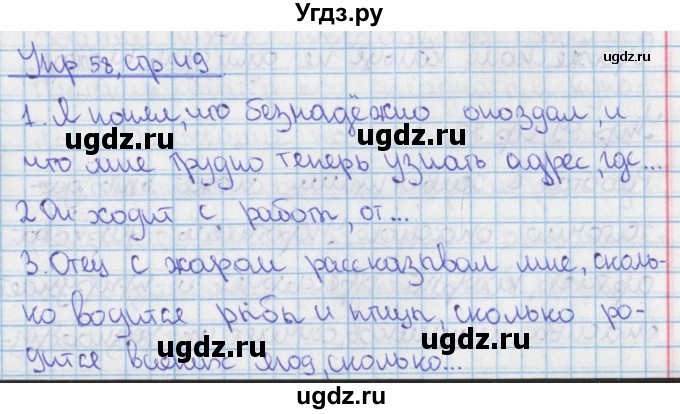 Угдз.ру
Упр 58, стр 49
ugdz.ru
1. Я понял, что безнадёжно опоздал, и
ugdz.ru ugdz.ru
что мне трудно теперь узнать адрес, где...
2 Он ходит с работ, от...
ugdz.ru
3. Отец с жаром рассказывал мне, сколь-
ко водится рыбы и птицы, сколько ро-
ugdz.ru ugdz.ru
дится всяких ягод, сколько...